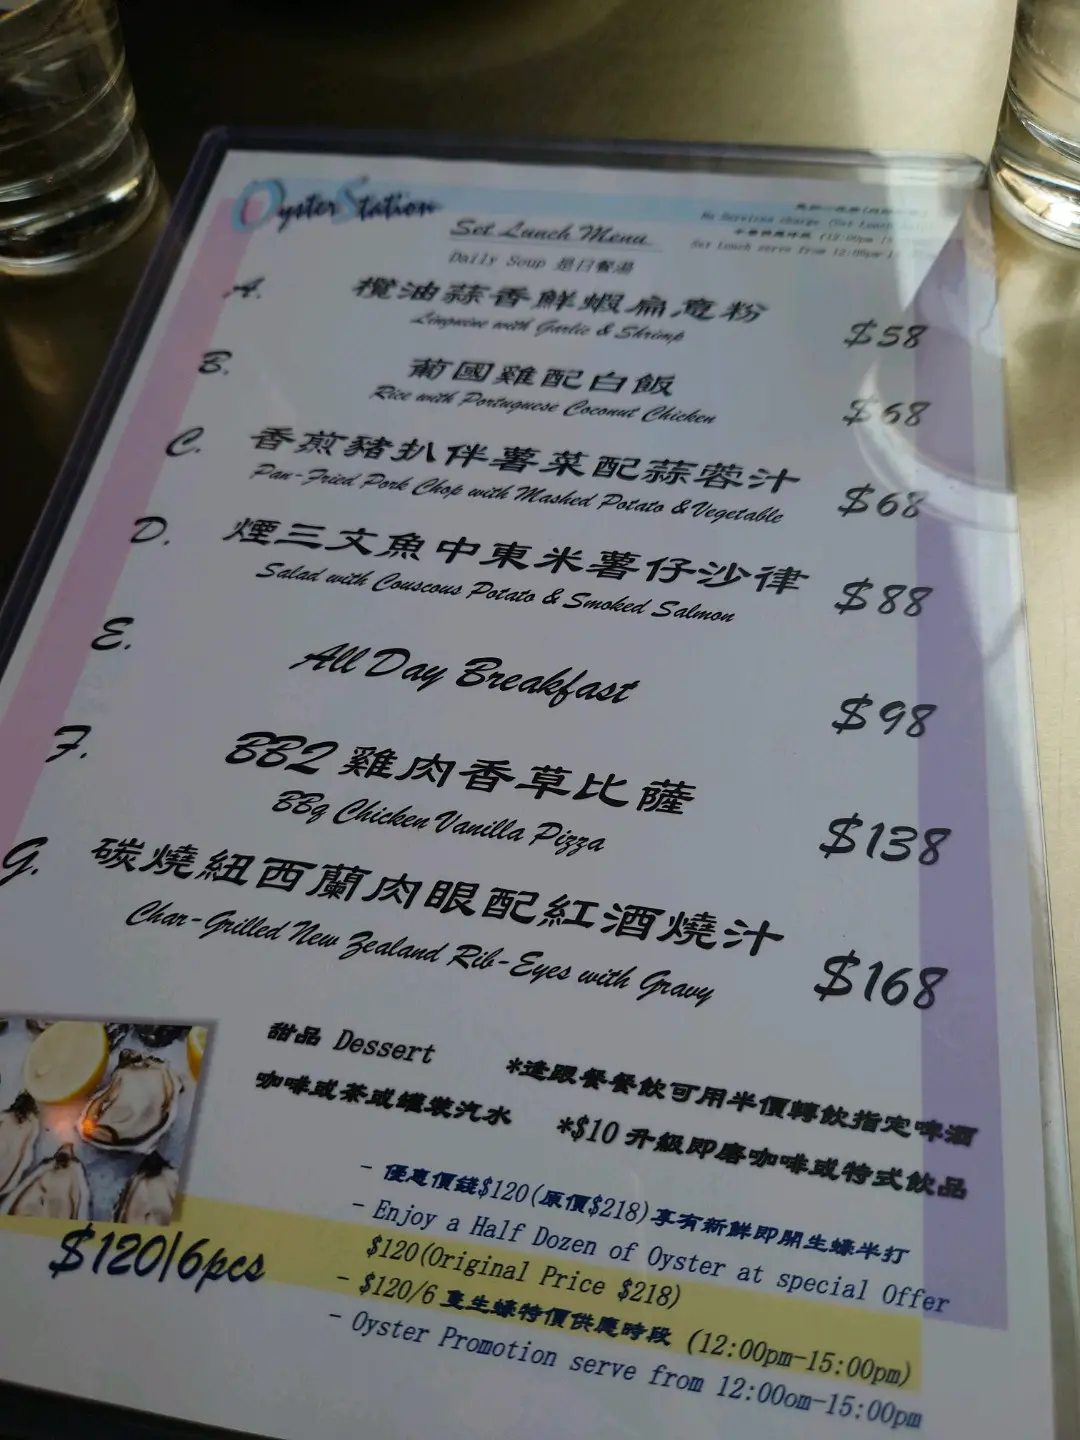 Oyster Station
Set Lunch Menu
No Services charge (Set Lunch
Set Lunch serve from 12:00pm-
Daily Soup 是日餐湯
A. 欖油蒜香鮮蝦扁意粉 $58
Linguine with Garlic & Shrimp
B. 葡國雞配白飯 $68
Rice with Portuguese Coconut Chicken
C. 香煎豬扒伴薯菜配蒜蓉汁 $68
Pan-Fried Pork Chop with Mashed Potato & Vegetable
D. 煙三文魚中東米薯仔沙律 $88
Salad with Couscous Potato & Smoked Salmon
E. All Day Breakfast $98
F. BBQ 雞肉香草比薩 $138
BBq Chicken Vanilla Pizza
G. 碳燒紐西蘭肉眼配紅酒燒汁 $168
Char-Grilled New Zealand Rib-Eyes with Gravy
甜品 Dessert
*逢跟餐餐飲可用半價轉飲指定啤酒
咖啡或茶或罐裝汽水
*$10 升級即磨咖啡或特式飲品
- 優惠價錢$120(原價$218)享有新鮮即開生蠔半打
- Enjoy a Half Dozen of Oyster at special Offer
$120(Original Price $218)
$120/6pcs
- $120/6 隻生蠔特價供應時段 (12:00pm-15:00pm)
- Oyster Promotion serve from 12:00om-15:00pm